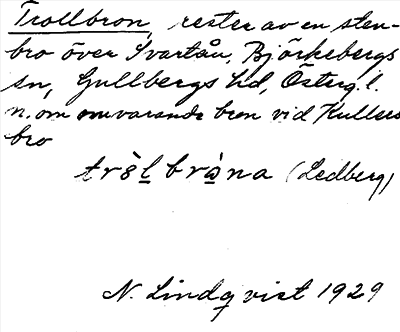 Trollbron, rester av en sten-
bro över Svartån, Björkebergs
sn, Gullbergs hd, Österg. l.
n. om nuvarande bron vid Kullers
bro
trò̀l brò̀na (Ledberg)
N. Lindqvist 1929